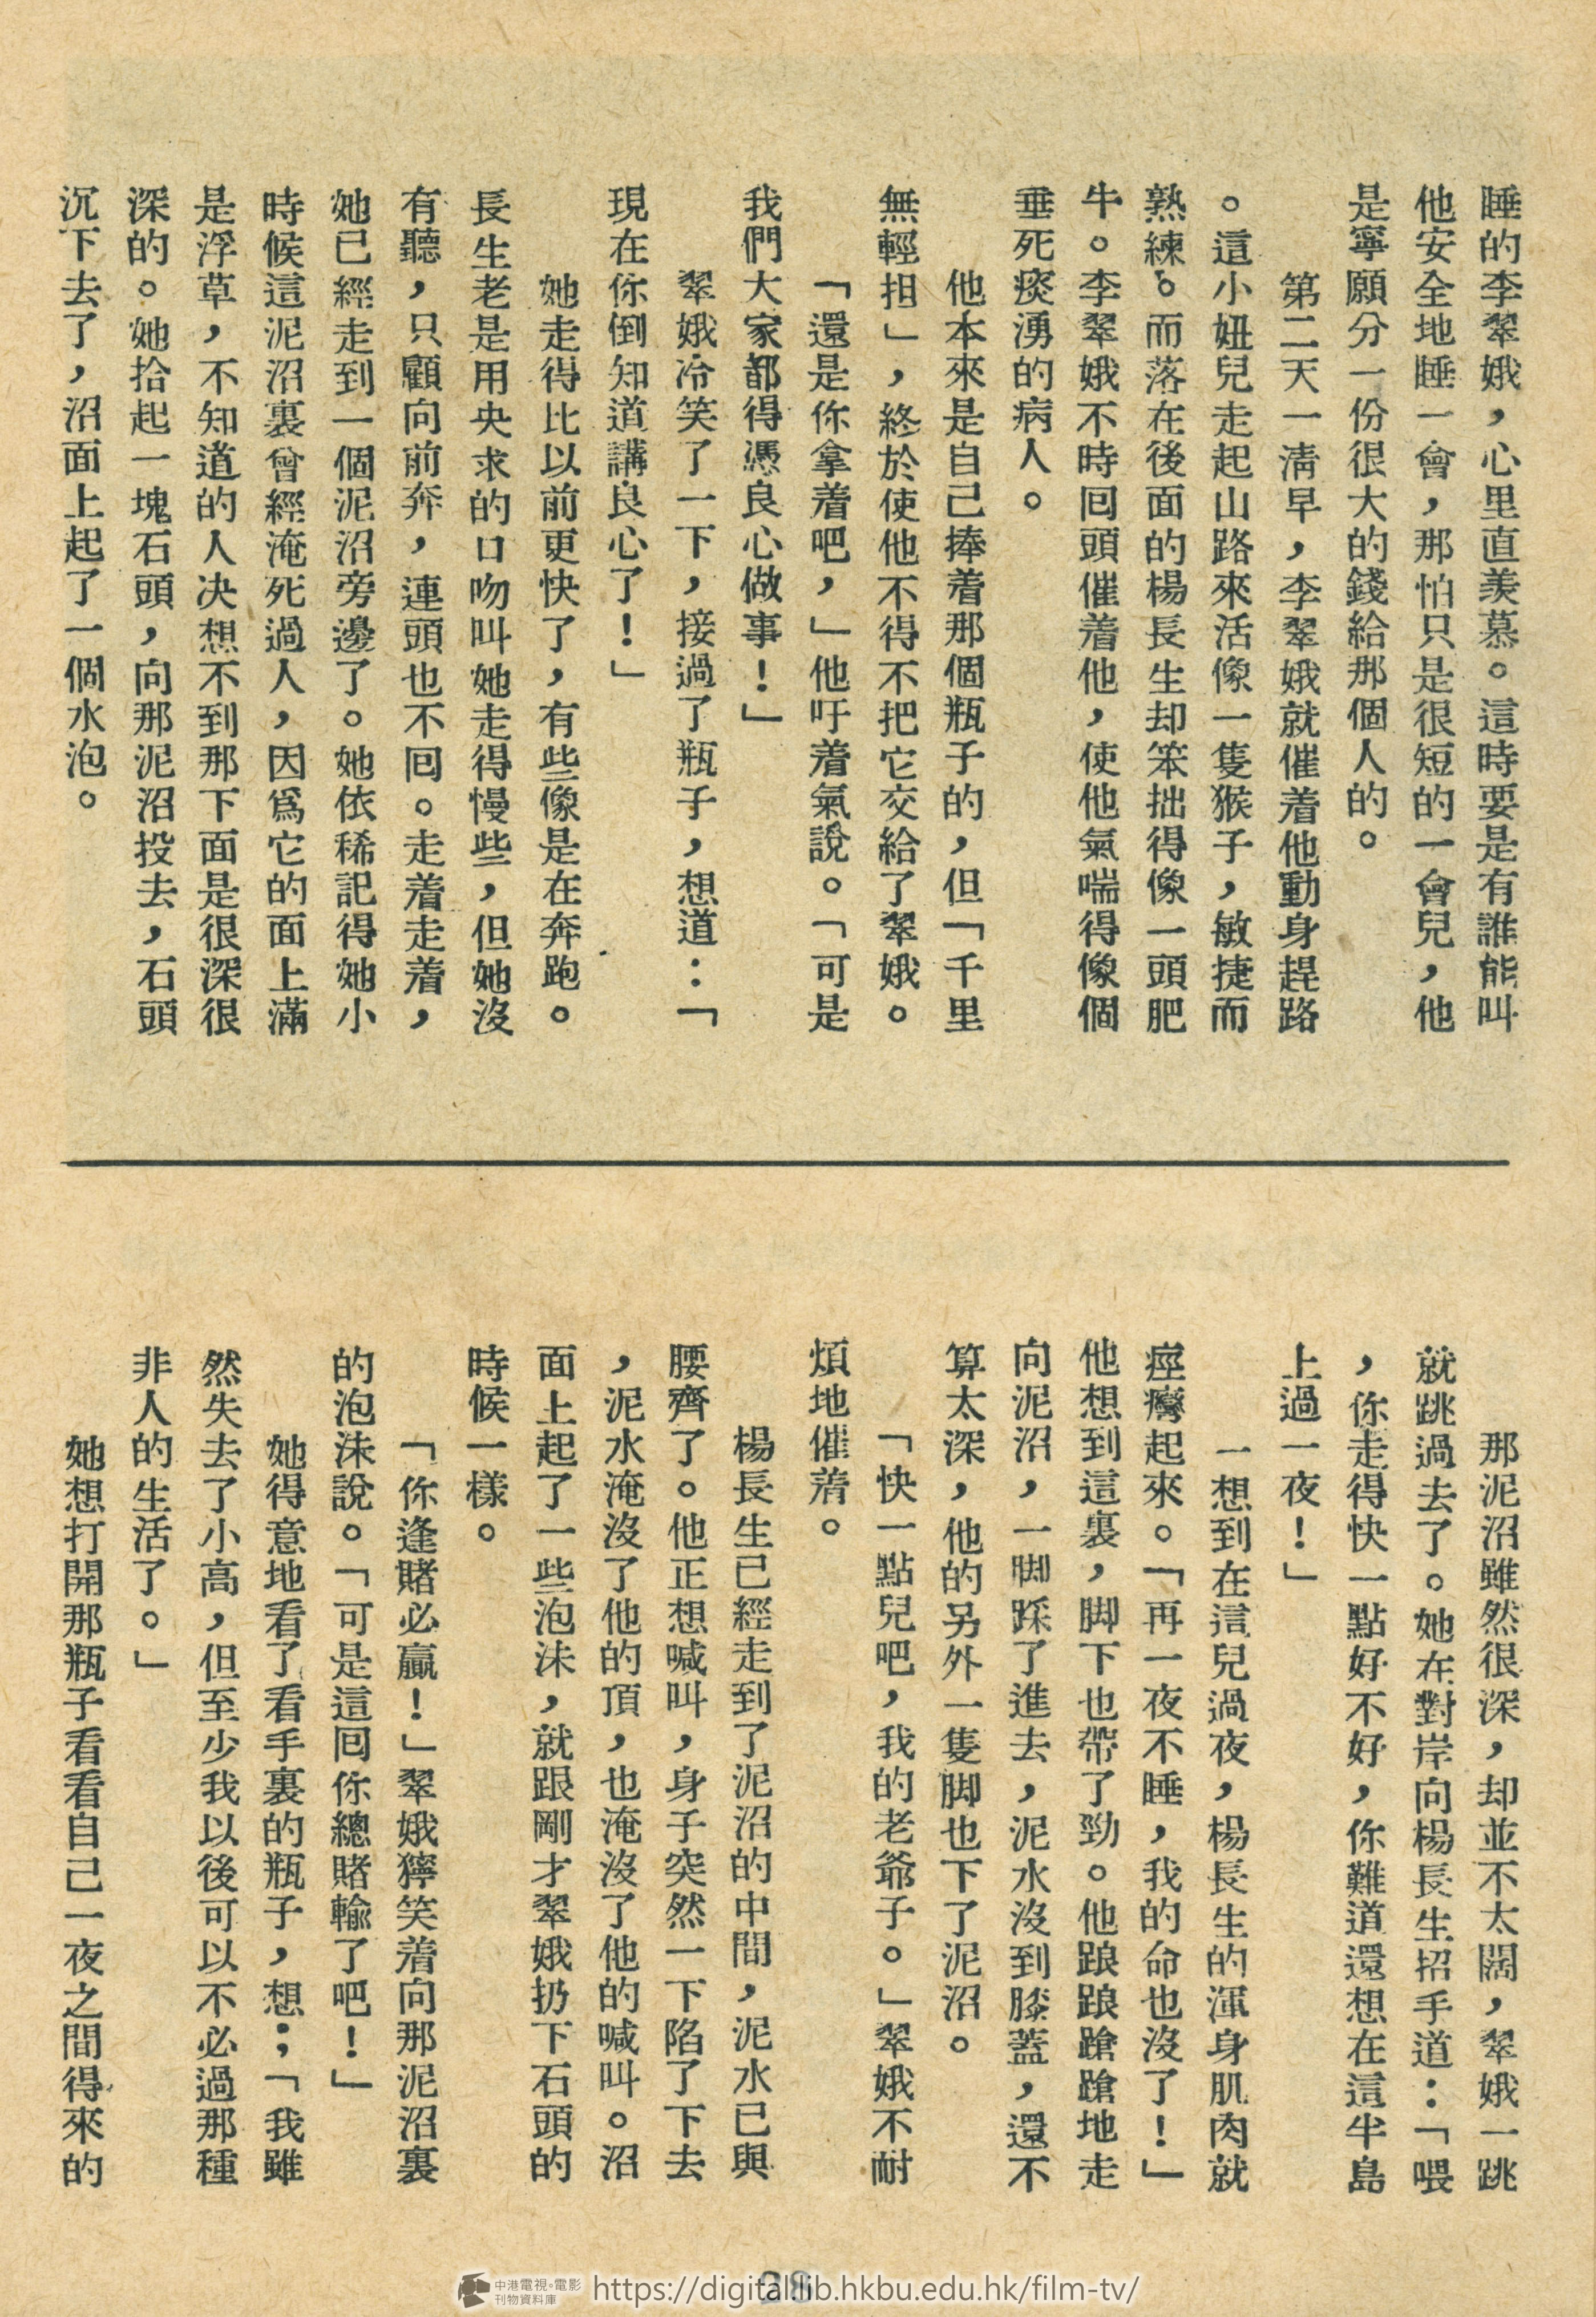 睡的李翠娥，心里直羨慕。這時要是有誰能叫
他安全地睡一會，那怕只是很短的一會兒，他
是寧願分一份很大的錢給那個人的。
第二天一淸早，李翠娥就催着他動身趕路
。這小妞兒走起山路來活像一隻猴子，敏捷而
熟練。而落在後面的楊長生却笨拙得像一頭肥
牛。李翠娥不時囘頭催着他，使他氣喘得像個
垂死痰湧的病人。
他本來是自己捧着那個瓶子的，但「千里
無輕担」，終於使他不得不把它交給了翠娥。
「還是你拿着吧，」他吁着氣說。「可是
我們大家都得憑良心做事！」
翠娥冷笑了一下，接過了瓶子，想道：「
現在你倒知道講良心了！」
她走得比以前更快了，有些像是在奔跑。
長生老是用央求的口吻叫她走得慢些，但她沒
有聽，只顧向前奔，連頭也不囘。走着走着，
她已經走到一個泥沼旁邊了。她依稀記得她小
時候這泥沼裏曾經淹死過人，因爲它的面上滿
是浮草，不知道的人决想不到那下面是很深很
深的。她拾起一塊石頭，向那泥沼投去，石頭
沉下去了，沼面上起了一個水泡。
那泥沼雖然很深，却並不太闊，翠娥一跳
就跳過去了。她在對岸向楊長生招手道：「喂
，你走得快一點好不好，你難道還想在這半島
上過一夜！」
一想到在這兒過夜，楊長生的渾身肌肉就
痙攣起來。「再一夜不睡，我的命也沒了！」
他想到這裏，脚下也帶了勁。他踉踉蹌蹌地走
向泥沼，一脚踩了進去，泥水沒到膝蓋，還不
算太深，他的另外一隻脚也下了泥沼。
「快一點兒吧，我的老爺子。」翠娥不耐
煩地催着。
楊長生已經走到了泥沼的中間，泥水已與
腰齊了。他正想喊叫，身子突然一下陷了下去
，泥水淹沒了他的頂，也淹沒了他的喊叫。沼
面上起了一些泡沫，就跟剛才翠娥扔下石頭的
時候一樣。
「你逢賭必贏！」翠娥獰笑着向那泥沼裏
的泡沫說。「可是這囘你總賭輸了吧！」
她得意地看了看手裏的瓶子，想；「我雖
然失去了小高，但至少我以後可以不必過那種
非人的生活了。」
她想打開那瓶子看看自己一夜之間得來的
28
中港電視·電影
刊物資料庫
https://digital.lib.hkbu.edu.hk/film-tv/